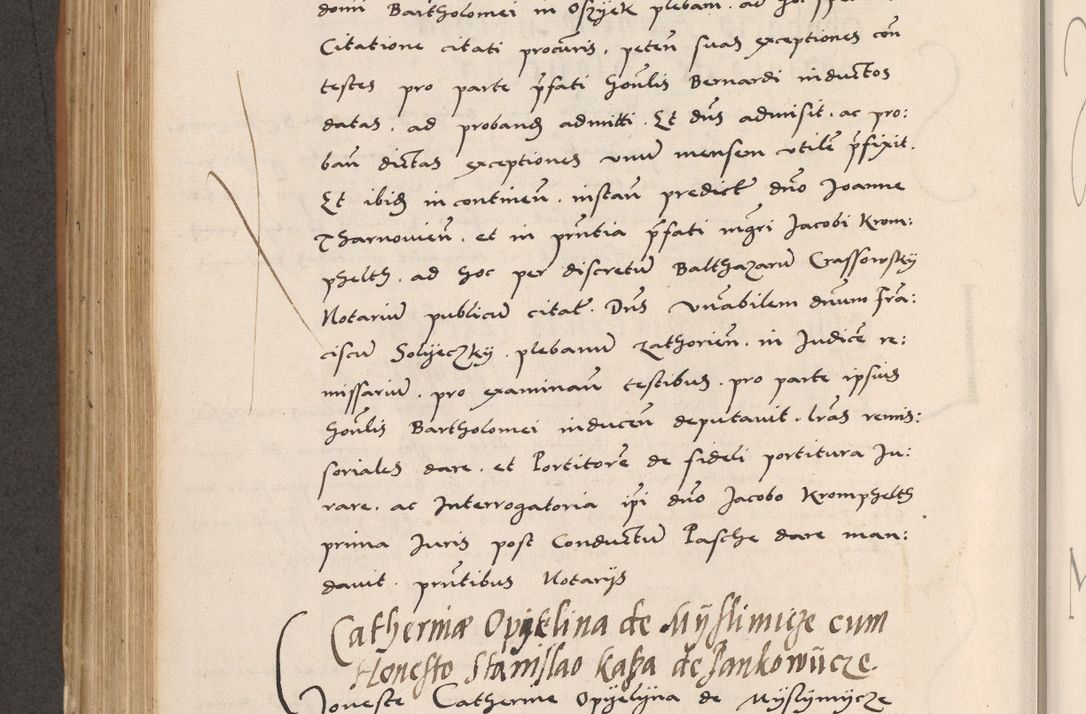 domi Bartholomei in Oszyek plebani ad
Citatione citati procuris. peten suas exceptiones con
testes pro parte pfati honlis Bernardi inductos
datas. ad proband admitti. Et dns admisit. ac pro:
ban dictas exceptiones unu mensem utile pfixit.
Et ibid incontinen. instan predict dno Joanne
Tharnowien. et in pntia pfati mgri Jacobi Krom:
phelth. ad hoc per discretu Balthazaru Crassowsky
Notariu publicu citat. Dns vnabilem dnum Fra:
ciscu Solyeczky. plebanum zathorien. in Judice re:
missariu. pro examinan testibus. pro parte ipsius
honlis Bartholomei inducen deputavit. lras remis:
soriales dare. et Portitore de fideli portitura Ju:
rare. ac Interrogatoria ipi dno Jacobo Kromphelth
prima Juris post Conductu Pasche dare man:
davit. pntibus Notarijs
Catherinæ Opyelina de Myslimicze cum
Honesto Stanislao Kasza de Jankowijcze.
Honeste Catherine Opyelyna de Myslymycze